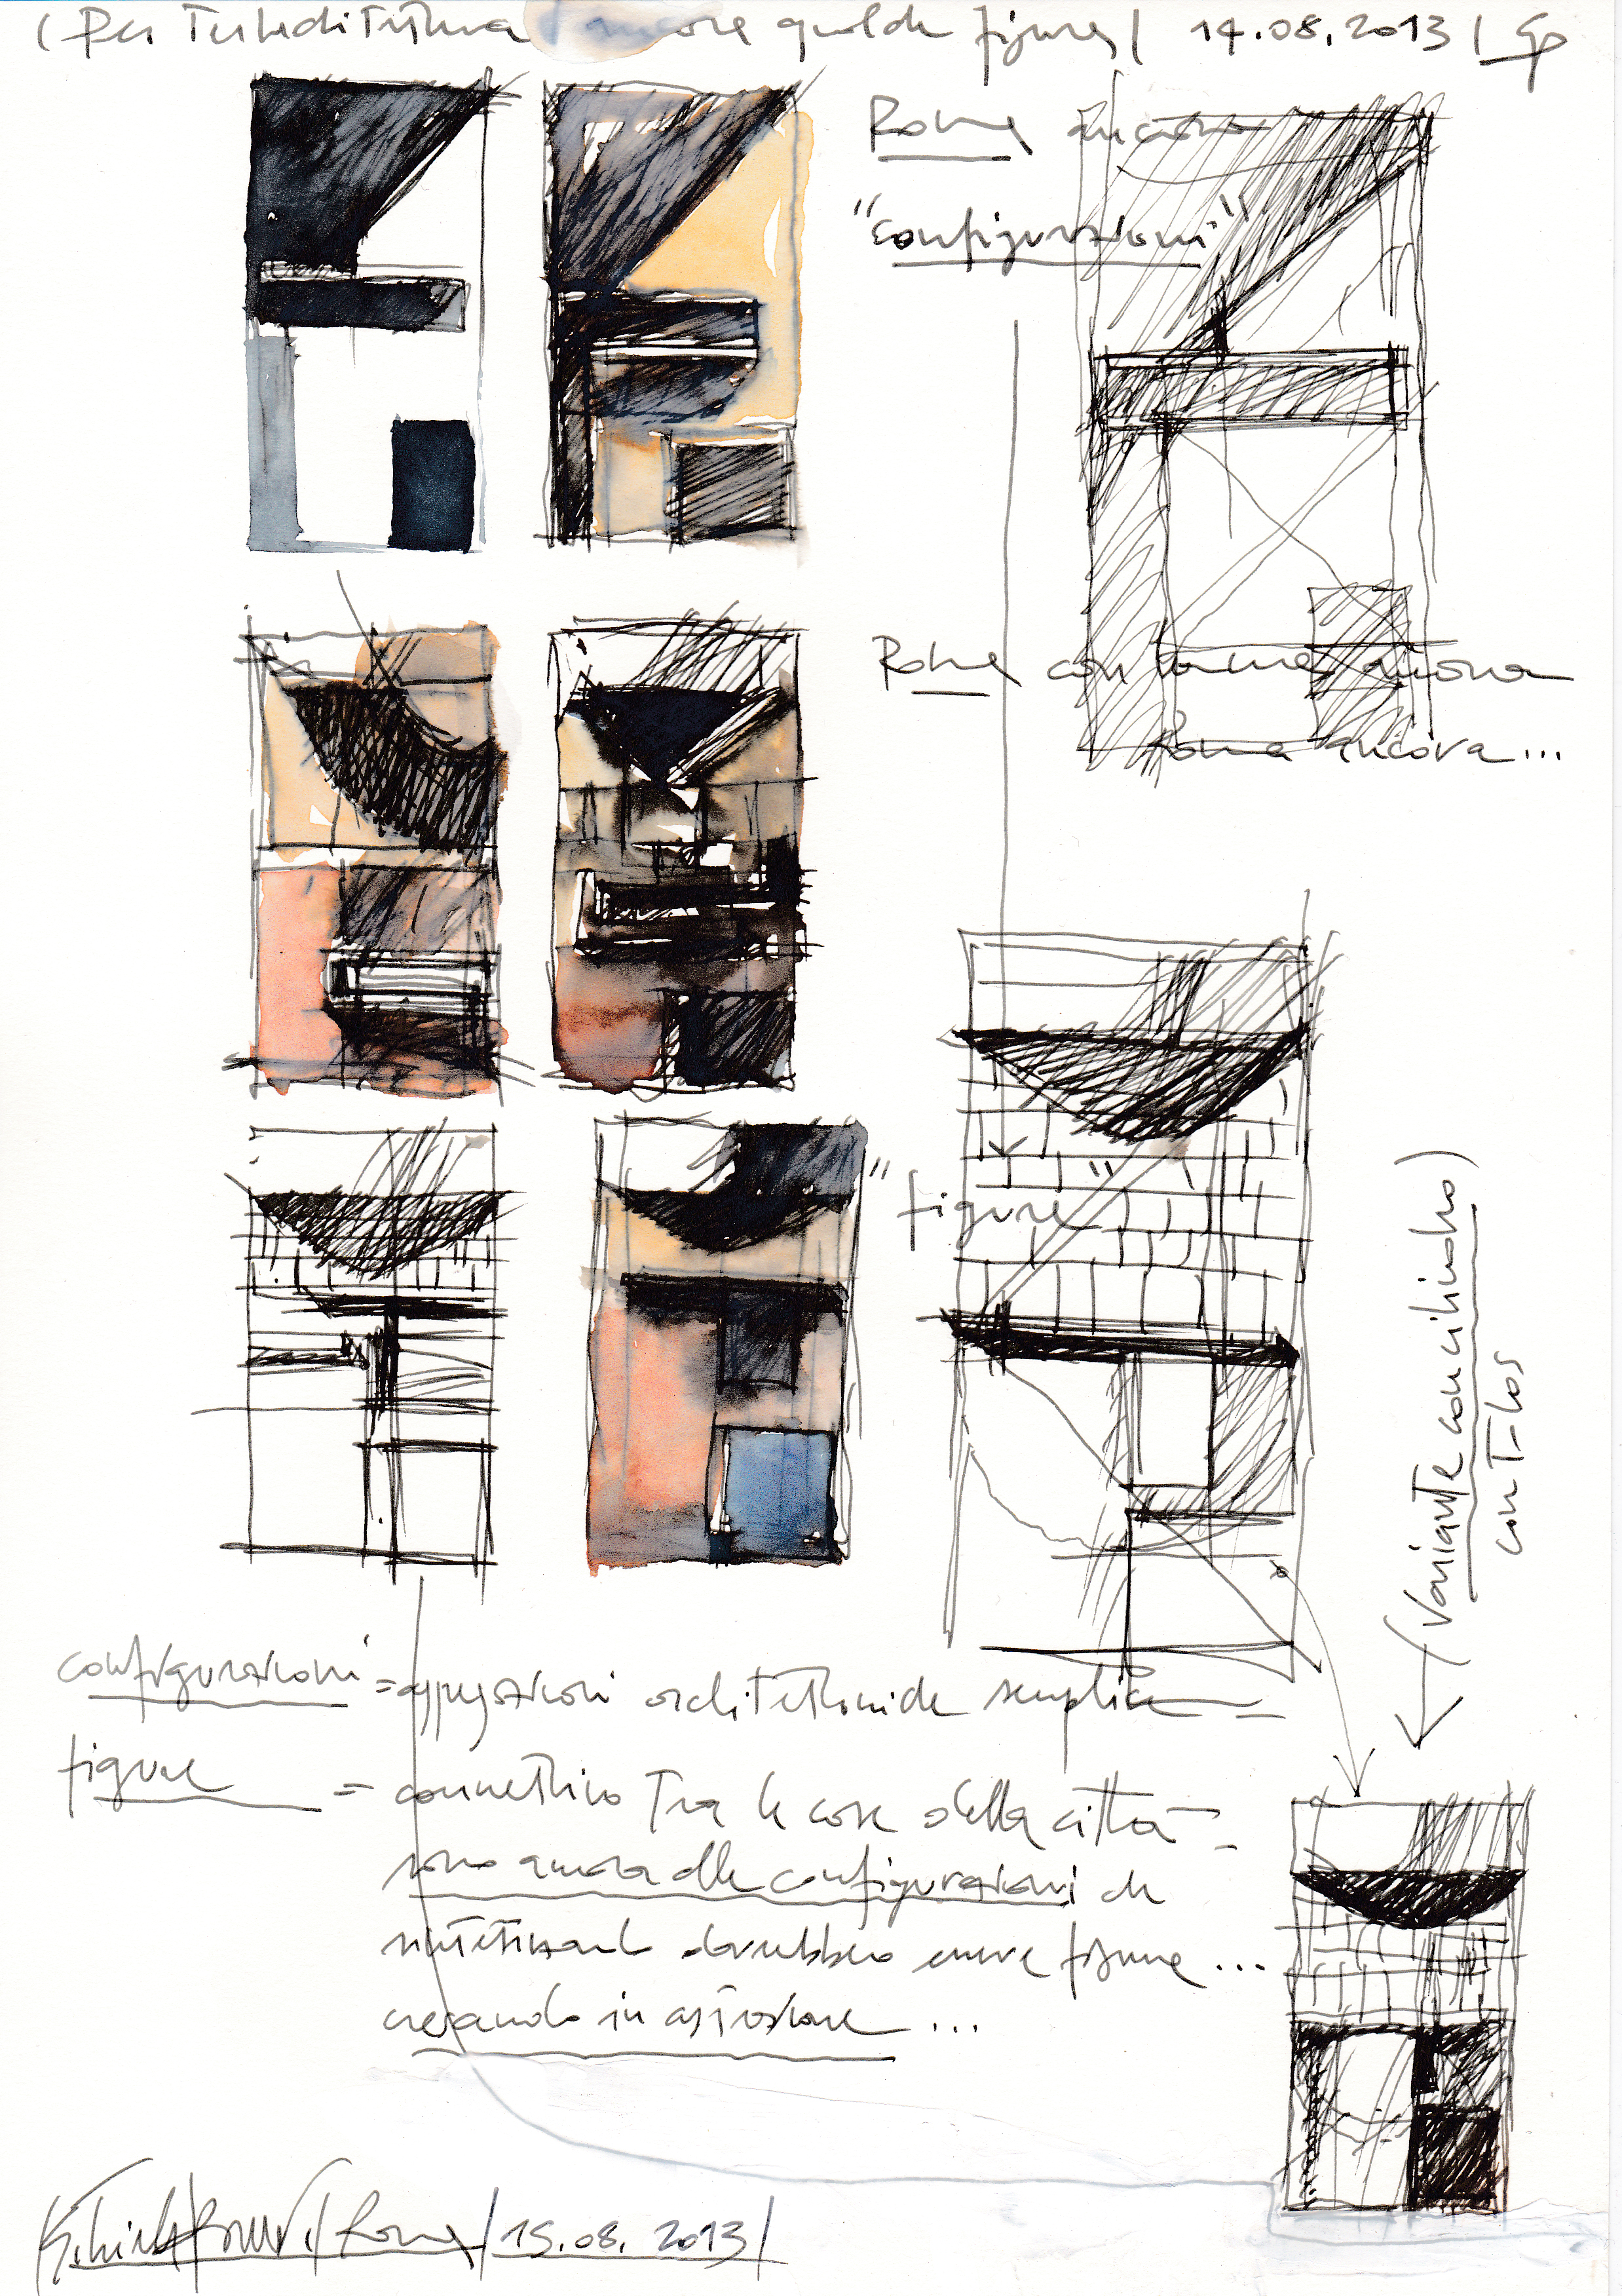 (Per ancora qualche figura) 14.08.2013 | Gp
Roma ancora
"configurazioni"
Roma con ancora
Roma ancora...
"figure"
(Variante con cilindro)
con T-los
configurazioni = aggregazioni architettoniche semplici =
figure = connettivo Tra le cose della città =
sono ancora delle configurazioni che
sintetizzando dovrebbero essere figure ...
creando in astrazione ...
Roma / 15.08.2013 /